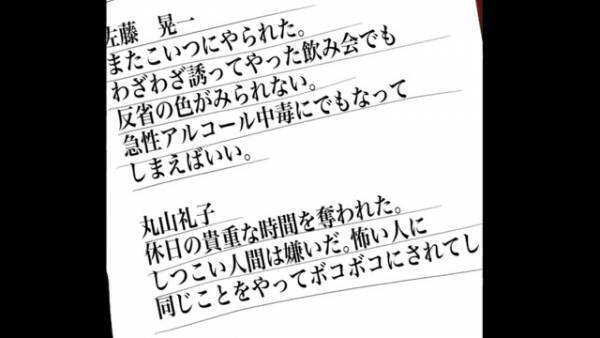 佐藤　晃一
またこいつにやられた。
わざわざ誘ってやった飲み会でも
反省の色がみられない。
急性アルコール中毒にでもなって
しまえばいい。
丸山礼子
休日の貴重な時間を奪われた。
しつこい人間は嫌いだ。怖い人に
同じことをやってボコボコにされてし